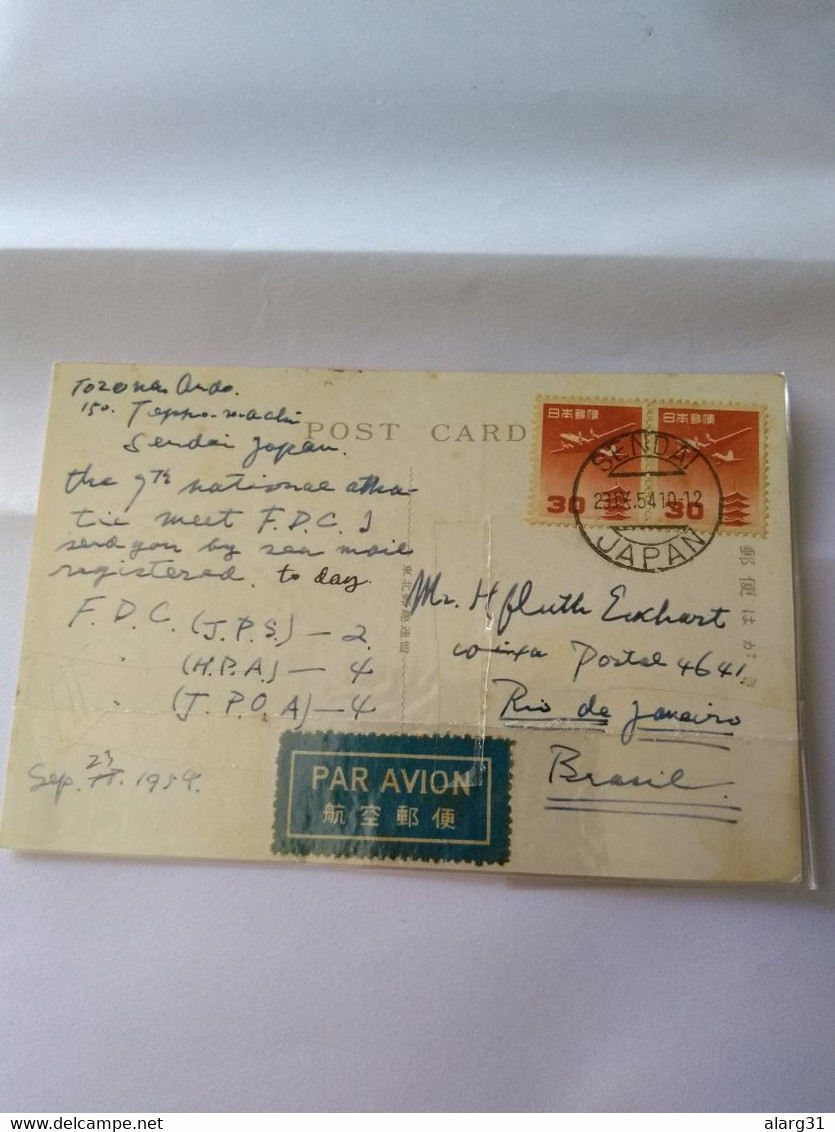 Tozona Ando.
150. Teppo-machi
Sendai Japan.
POST CARD
the 9th national athle-
tic meet F.D.C. I
send you by sea mail
registered. to day.
F.D.C. (J.P.S.) — 2
(H.P.A) — 4
(J.P.O.A) — 4
Sep. 23 1954.
日本郵便
30
日本郵便
30
SENDAI
23.IX.54 10-12
JAPAN
郵便はがき
Mr. H Eckhart
Postal 4641
Rio de Janeiro
Brasil.
PAR AVION
航空郵便
alarg31